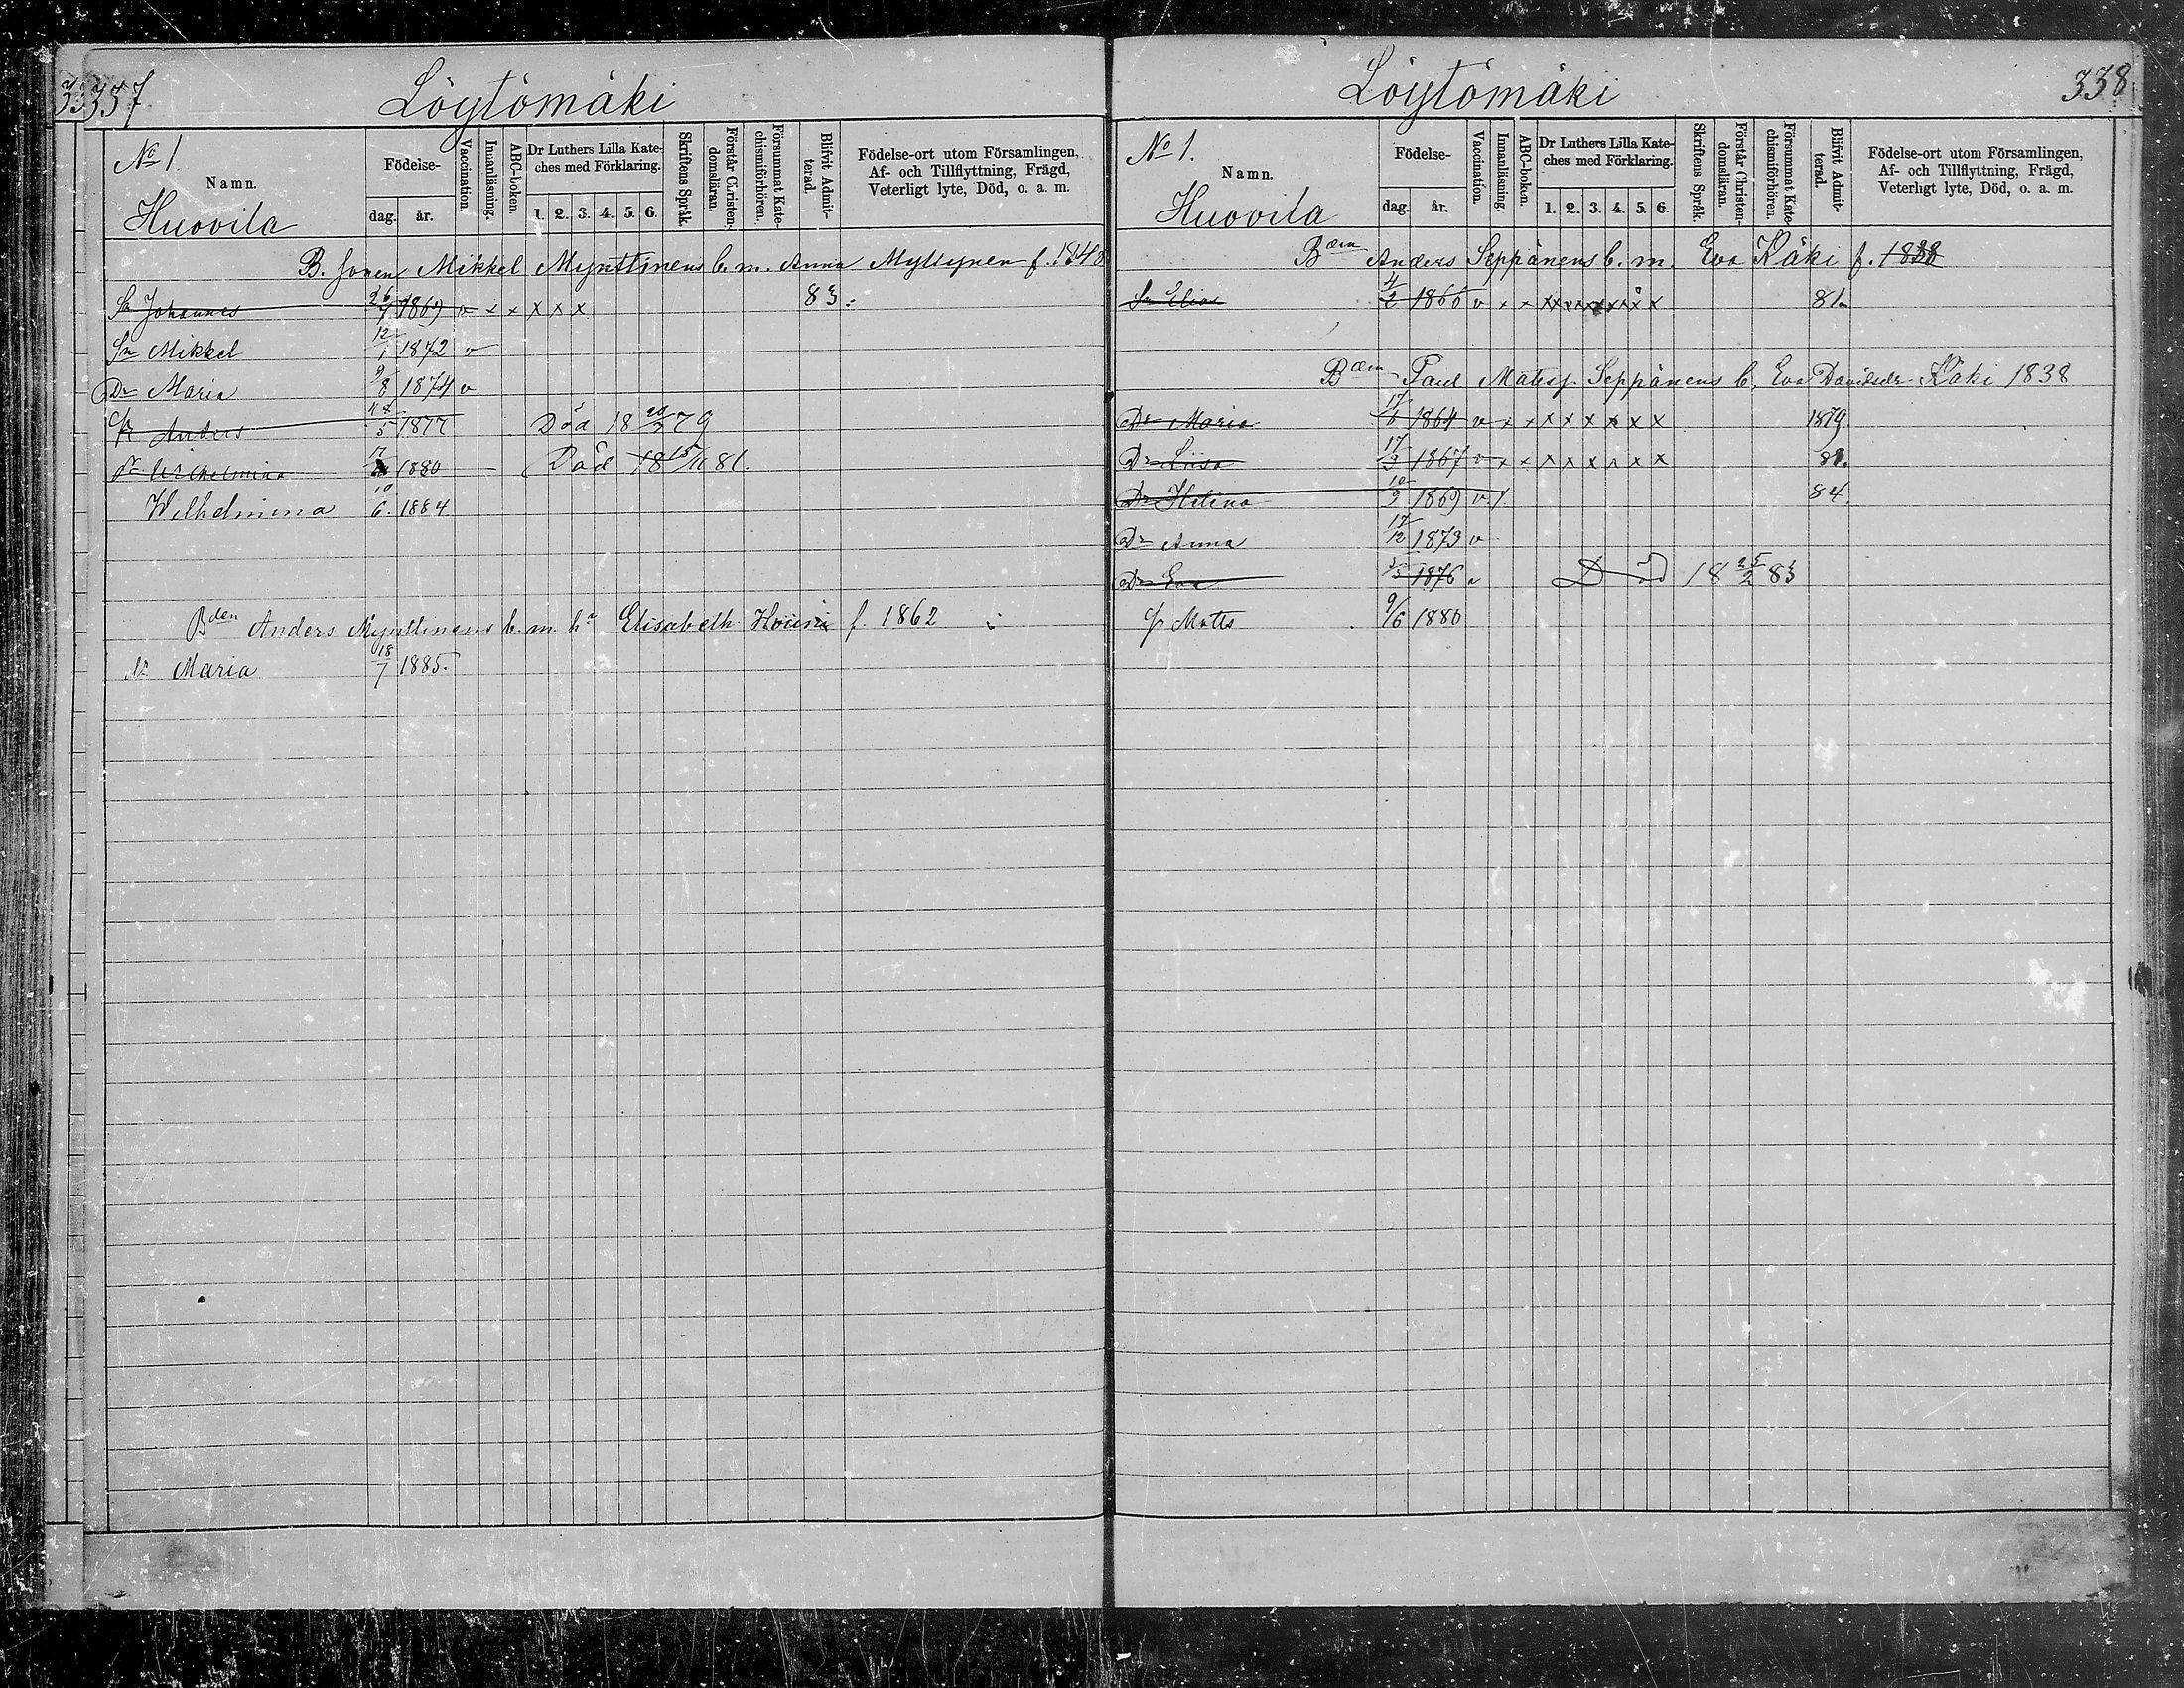 337
Löytömäki
No 1.
Namn.
Huovila
Födelse-
dag. år.
Vaccination.
Innanläsning.
ABC-boken.
Dr Luthers Lilla Kate-
ches med Förklaring.
1. 2. 3. 4. 5. 6.
Skriftens Språk.
Förstår Christen-
domsläran.
Försummat Kate-
chismiförhören.
Blifvit Admit-
terad.
Födelse-ort utom Församlingen,
Af- och Tillflyttning, Frägd,
Veterligt lyte, Död, o. a. m.
B. Mikkel Mynttinens b. m. Anna Myllynen f. 1848
Sn Johannes 26/7 1869 v x x x x x 83.
Sn Mikkel 12/1 1872 v
Dr Maria 9/8 1874 v
Anders 1877 Död 18 79
Dr Wilhelmina 1880 Död 18 15/11 81.
Wilhelmina 10/6. 1884
Bden Anders Mynttinens b. m. hu Elisabeth f. 1862
Dr Maria 18/7 1885.
338
Löytömäki
No 1.
Namn.
Huovila
Födelse-
dag. år.
Vaccination.
Innanläsning.
ABC-boken.
Dr Luthers Lilla Kate-
ches med Förklaring.
1. 2. 3. 4. 5. 6.
Skriftens Språk.
Förstår Christen-
domsläran.
Försummat Kate-
chismiförhören.
Blifvit Admit-
terad.
Födelse-ort utom Församlingen,
Af- och Tillflyttning, Frägd,
Veterligt lyte, Död, o. a. m.
Anders Seppänens b. m. Eva Käki f. 1838
Sn Elias 81.
Paul Matsf. Seppänens b. Eva Davidsdr Käki 1838
Dr Maria 17/8 1864 v x x x x x x x x 1879.
Dr Liisa 17/3 1867 v x x x x x x x x 81.
Dr Helena 10/9 1869 v. 84.
Dr Anna 17/12 1873 v
Dr Eva 1876 v Död 18 25/2 83
Matts 9/6 1880